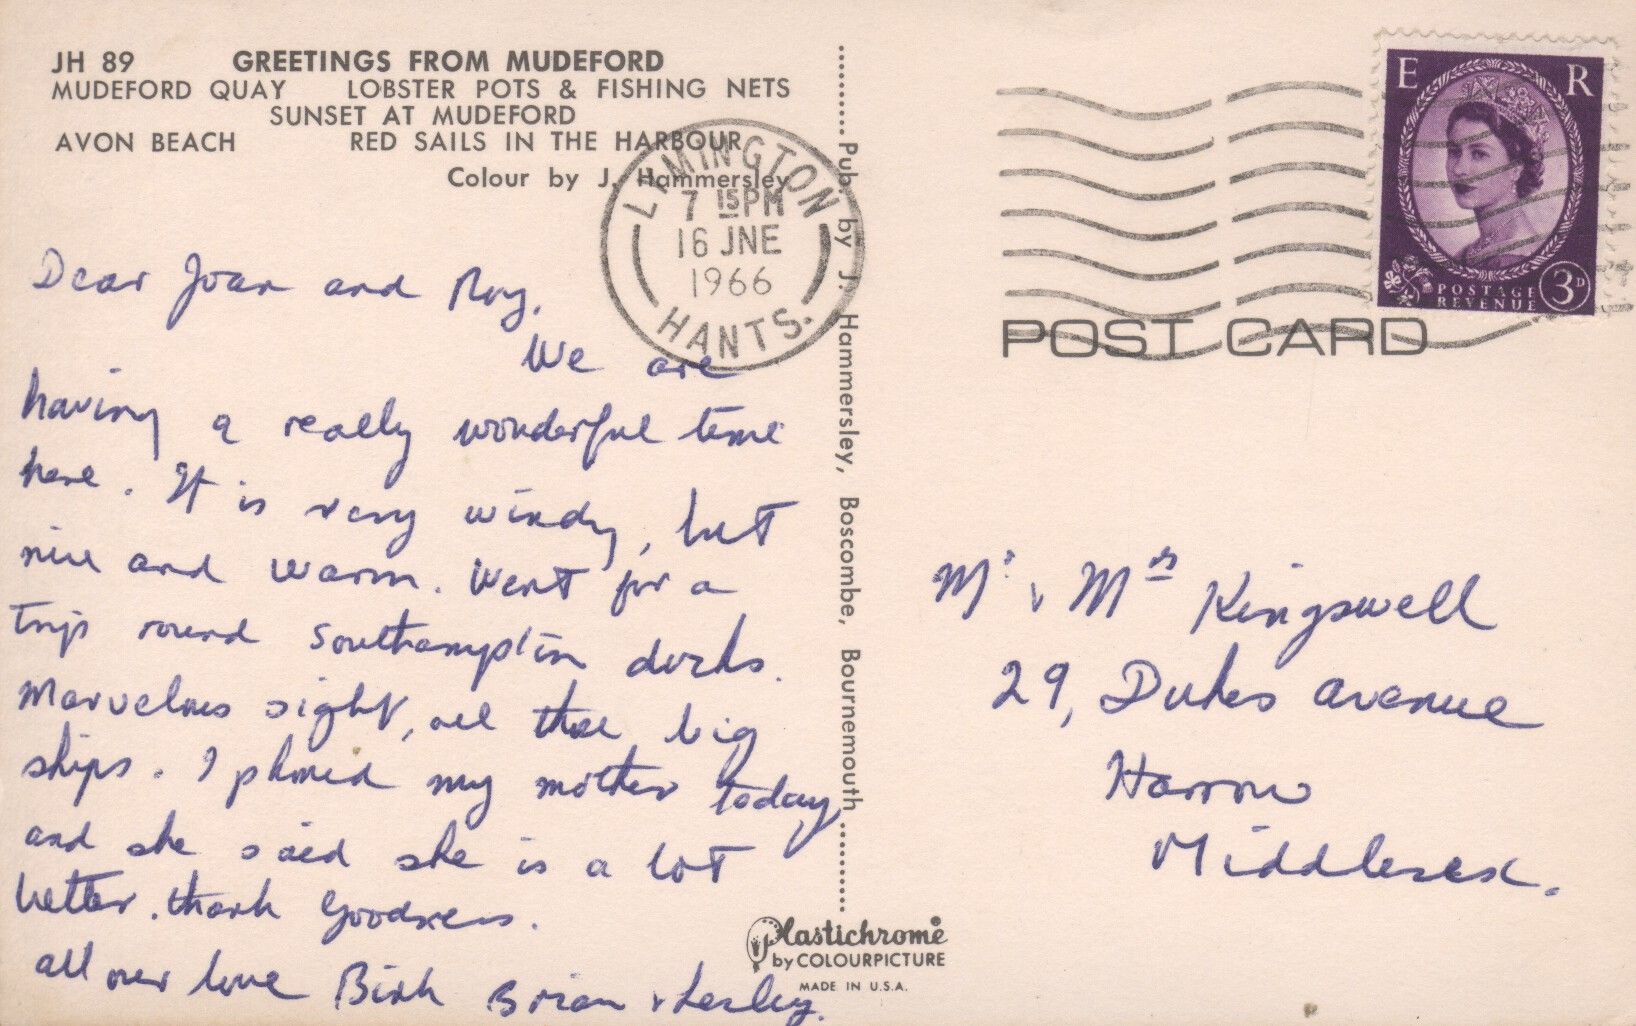 JH 89 GREETINGS FROM MUDEFORD
MUDEFORD QUAY LOBSTER POTS & FISHING NETS
SUNSET AT MUDEFORD
AVON BEACH RED SAILS IN THE HARBOUR
Colour by J. Hammersley
LYMINGTON
7 15PM
16 JNE
1966
HANTS.
Dear Joan and Roy,
We are
having a really wonderful time
here. It is very windy, but
nice and warm. Went for a
trip round Southampton docks.
Marvelous sight, all those big
ships. I phoned my mother today,
and she said she is a lot
better. thank goodness.
all our love Brian & Lesley.
Pub. by J. Hammersley, Boscombe, Bournemouth
Plastichrome
by COLOURPICTURE
MADE IN U.S.A.
E R
POSTAGE
REVENUE
3D
POST CARD
Mr & Mrs Kingswell
29, Dukes avenue
Harrow
Middlesex.